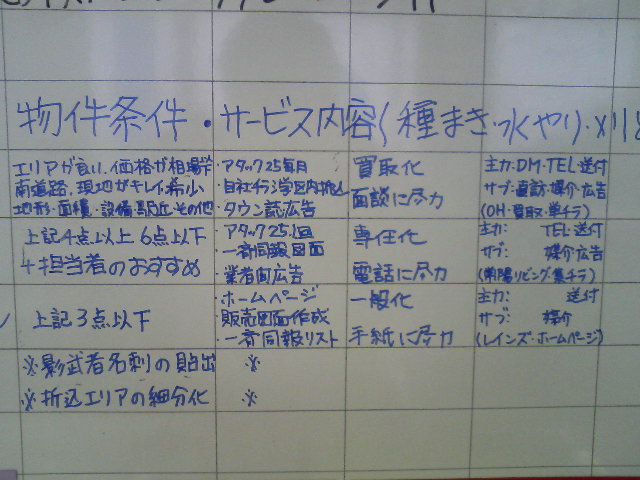 物件条件・サービス内容(種まき・水やり・メリ
エリアが良い、価格が相場下
南道路、現地がキレイ、希少
地形・面積・設備・駅近・その他
・アタック25毎月
・自社チラシ学区内折込
・タウン誌広告
買取化
面談に尽力
主力:DM・TEL・送付
サブ:直訪・媒介・広告
(OH・買取・単チラ)
上記4点以上6点以下
+担当者のおすすめ
・アタック25、1回
・一斉同報図面
・業者面広告
専任化
電話に尽力
主力: TEL・送付
サブ: 媒介・広告
(リビング・集チラ)
上記3点以下
・ホームページ
・販売図面作成
・一斉同報リスト
一般化
手紙に尽力
主力: 送付
サブ: 媒介
(レインズ・ホームページ)
※影武者名刺の貼出 ※
※折込エリアの細分化 ※